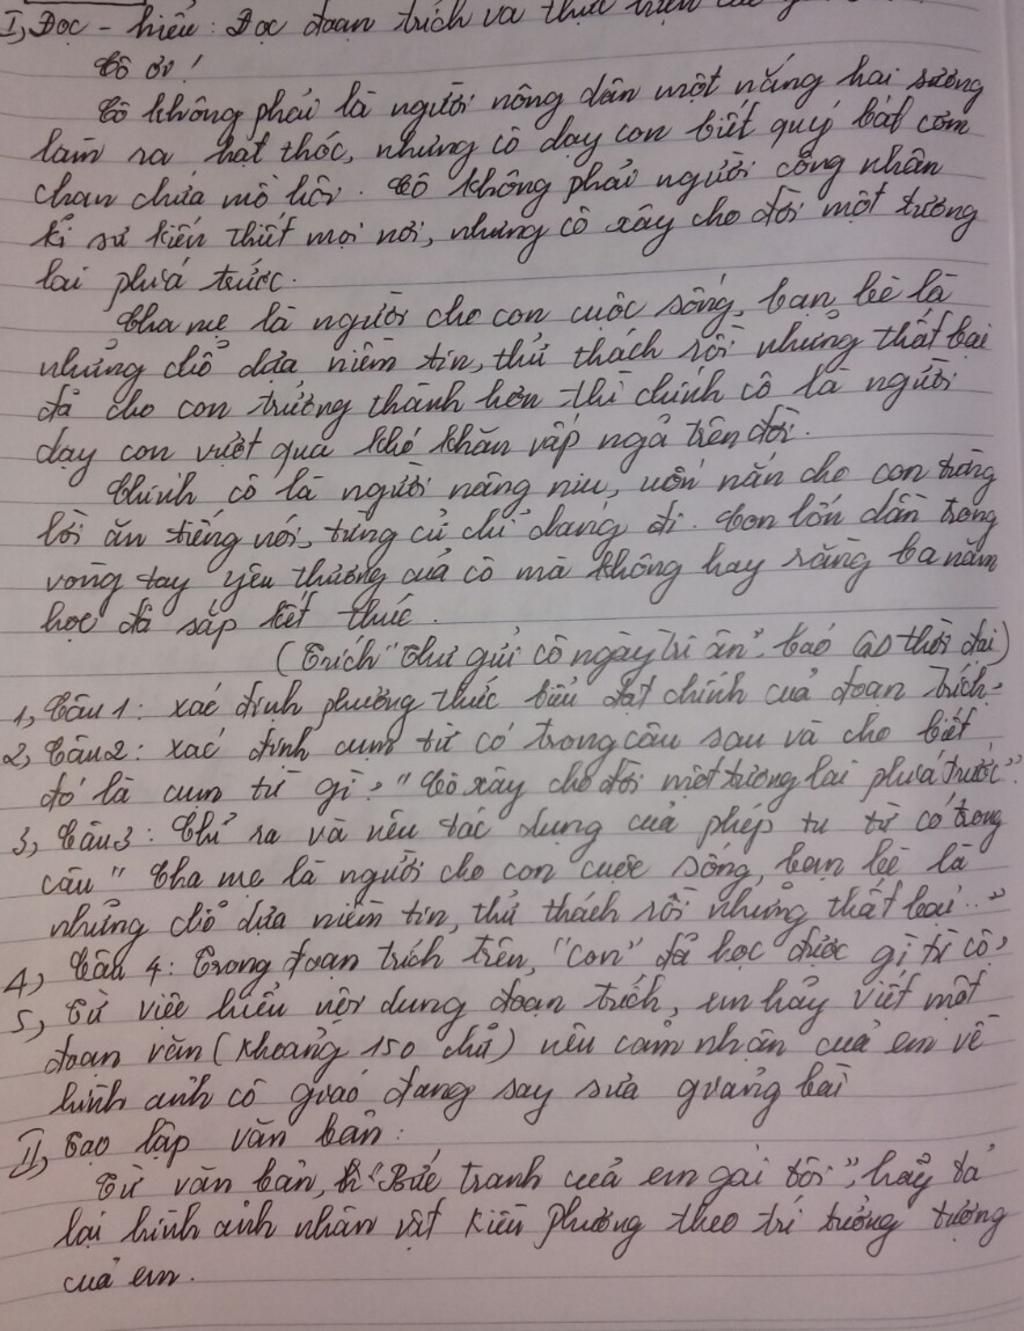 I, Đọc - hiểu: Đọc đoạn trích và thực hiện các
Cô ơi!
Cô không phải là người nông dân một nắng hai sương
làm ra hạt thóc, nhưng cô dạy con biết quý bát cơm
chan chứa mồ hôi. Cô không phải người công nhân
kĩ sư kiến thiết mọi nơi, nhưng cô xây cho đời một tương
lai phía trước.
Cha mẹ là người cho con cuộc sống, bạn bè là
những chỗ dựa niềm tin, thử thách rồi những thất bại
đã cho con trưởng thành hơn thì chính cô là người
dạy con vượt qua khó khăn vấp ngã trên đời.
Chính cô là người nâng niu, uốn nắn cho con từng
lời ăn tiếng nói, từng cử chỉ dáng đi. Con lớn dần trong
vòng tay yêu thương của cô mà không hay rằng ba năm
học đã sắp kết thúc.
(Trích "Thư gửi cô ngày tri ân", báo GD thời đại)
1, Câu 1: xác định phương thức biểu đạt chính của đoạn trích.
2, Câu 2: xác định cụm từ có trong câu sau và cho biết
đó là cụm từ gì? "Cô xây cho đời một tương lai phía trước".
3, Câu 3: Chỉ ra và nêu tác dụng của phép tu từ có trong
câu "Cha mẹ là người cho con cuộc sống, bạn bè là
những chỗ dựa niềm tin, thử thách rồi những thất bại..."
4, Câu 4: Trong đoạn trích trên, "con" đã học được gì từ cô?
5, Từ việc hiểu nội dung đoạn trích, em hãy viết một
đoạn văn (khoảng 150 chữ) nêu cảm nhận của em về
hình ảnh cô giáo đang say sưa giảng bài
II, Tạo lập văn bản:
Từ văn bản, "Bức tranh của em gái tôi", hãy tả
lại hình ảnh nhân vật Kiều Phương theo trí tưởng tượng
của em.